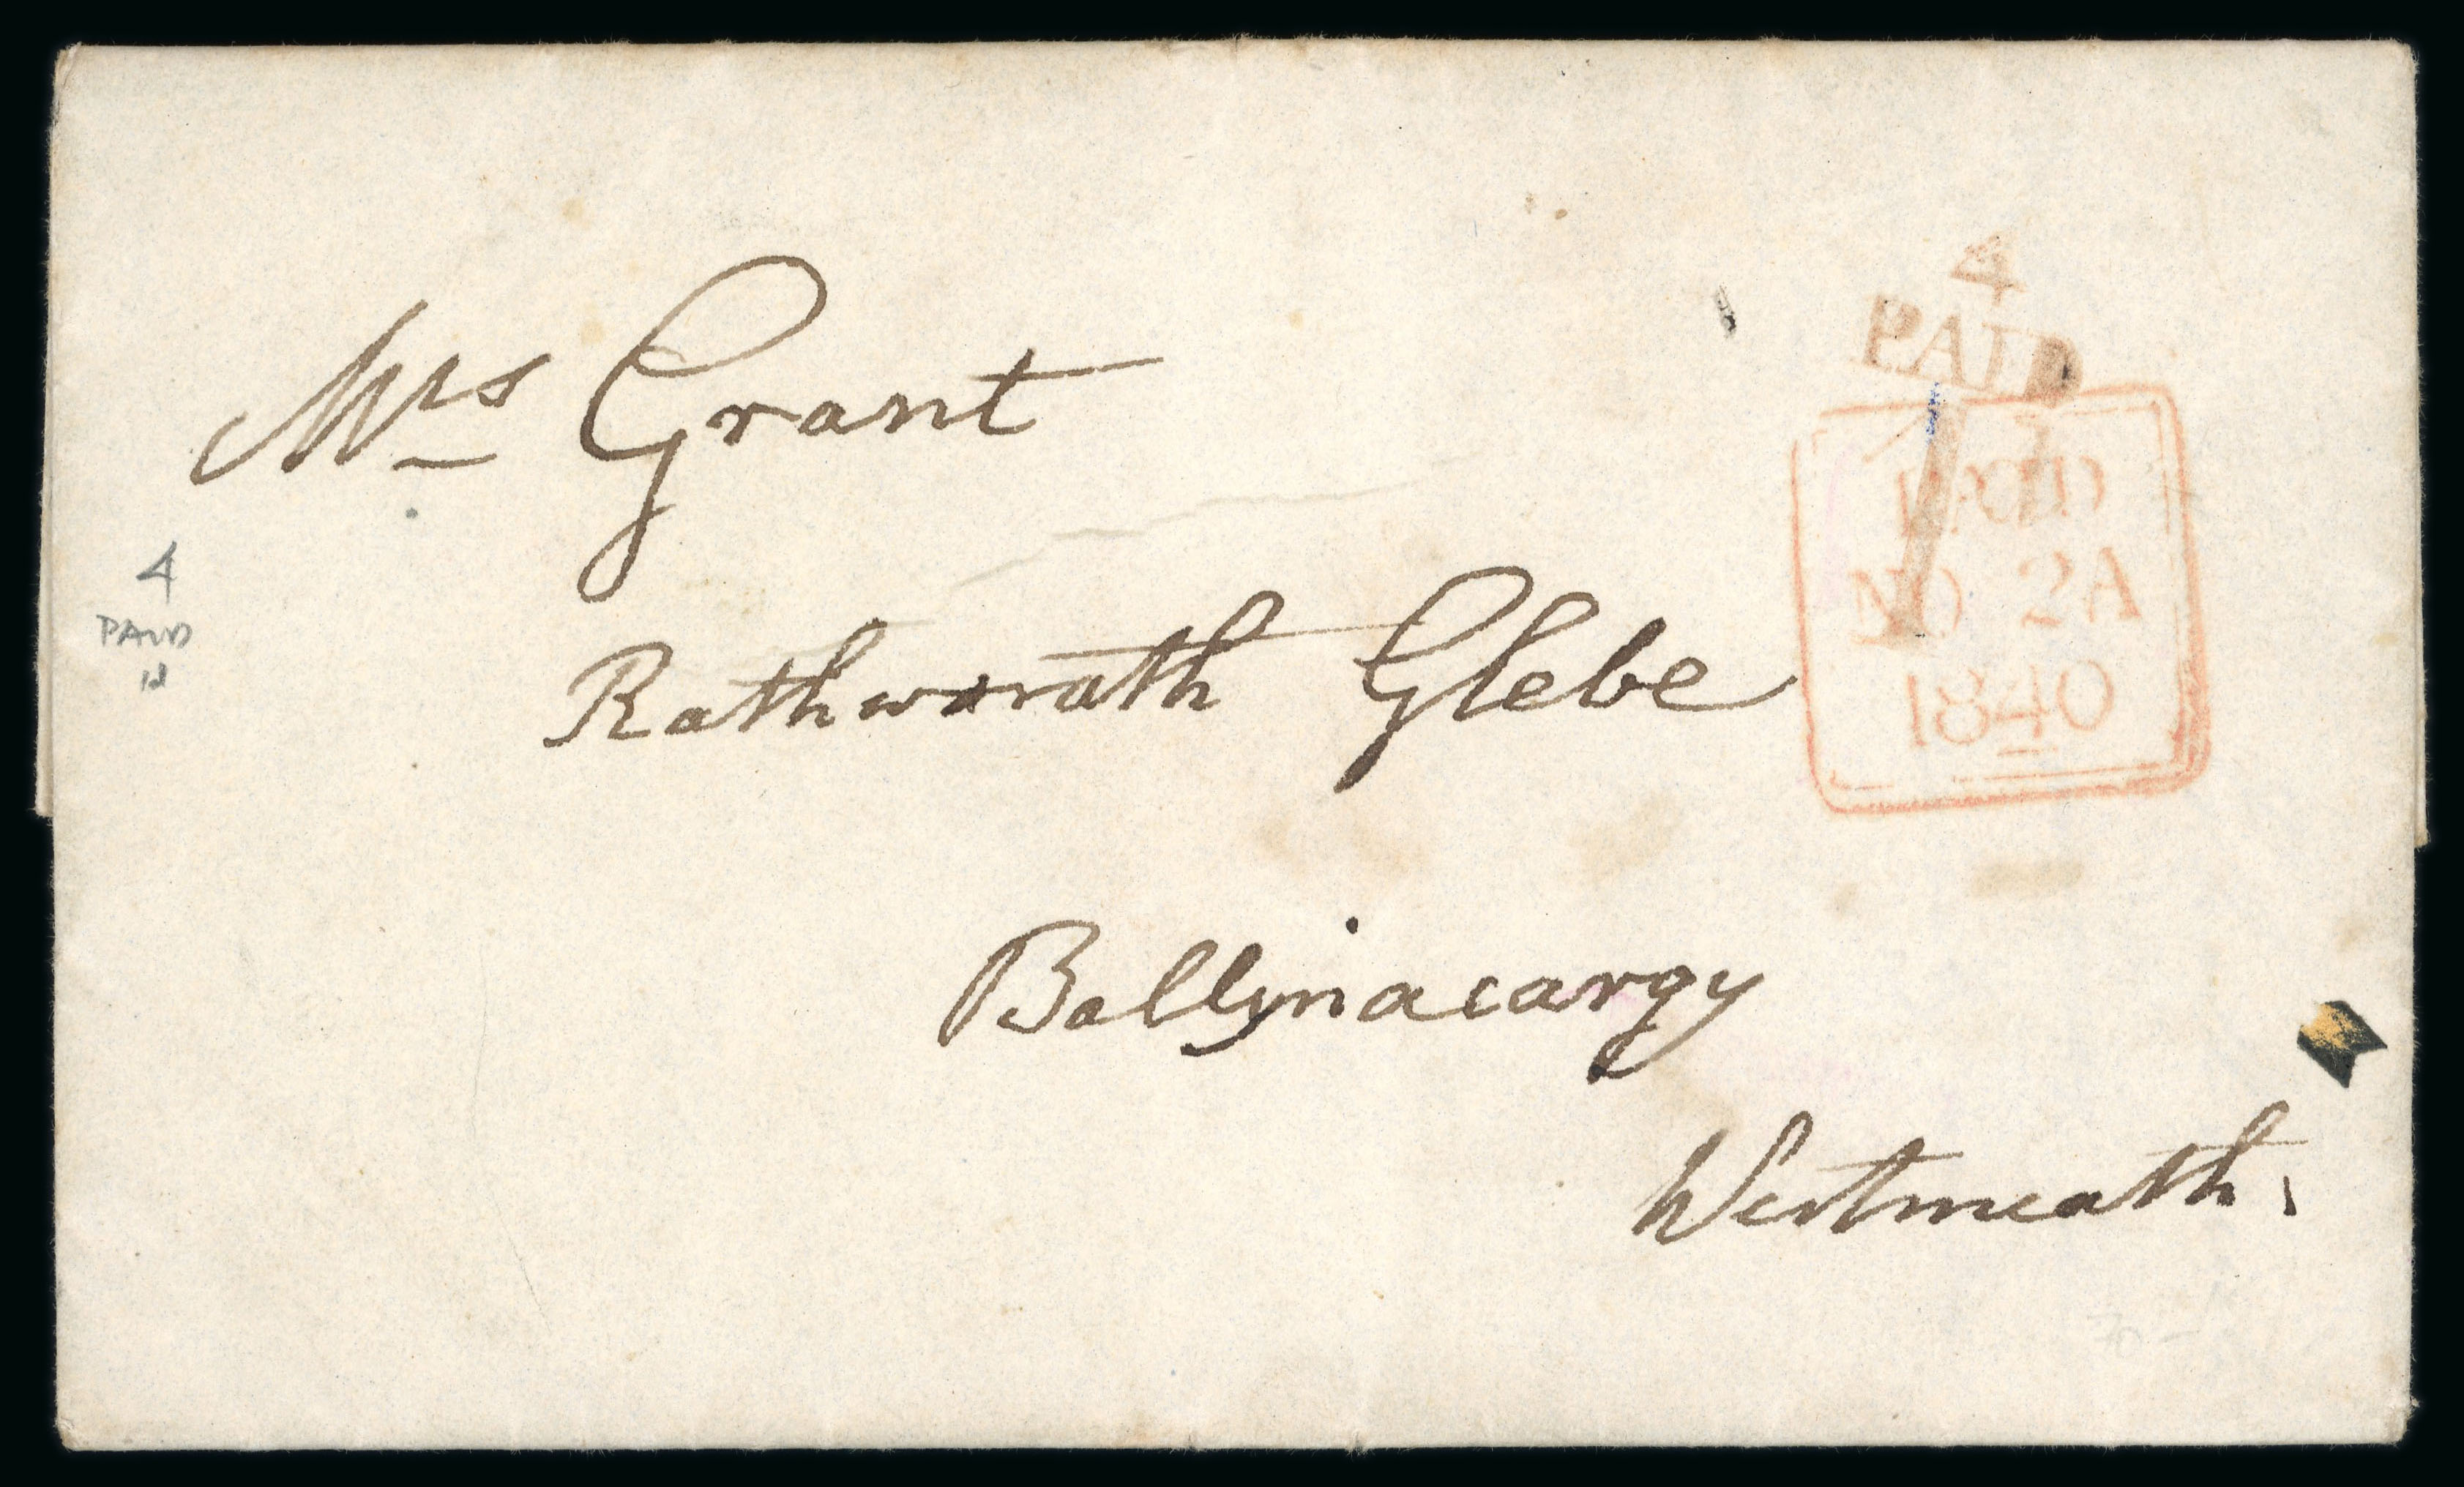 Mrs Grant
Rathwarath Glebe
Ballynacargy
Westmeath.
4
PAID
1
PAID
NO 2A
1840
4
PAID